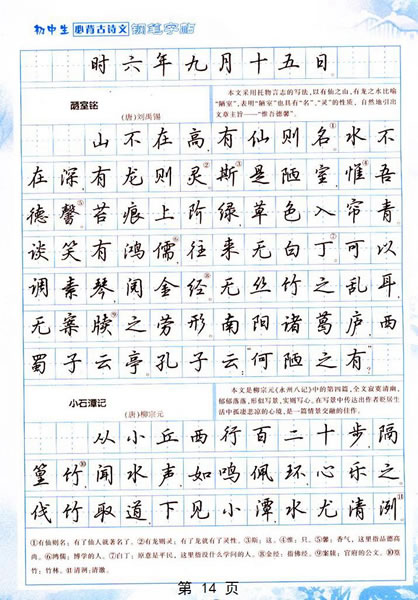 初中生 必背古诗文 钢笔字帖
时六年九月十五日
陋室铭
(唐)刘禹锡
本文采用托物言志的写法,以有仙之山,有龙之水比喻
“陋室”,表明“陋室”也具有“名”、“灵”的性质,自然地引出
文章主旨——“惟吾德馨”。
山不在高有仙则名①水不
在深有龙则灵②斯③是陋室惟④吾
德馨⑤苔痕上阶绿草色入帘青
谈笑有鸿儒⑥往来无白丁⑦可以
调素琴阅金经⑧无丝竹之乱耳
无案牍⑨之劳形南阳诸葛庐西
蜀子云亭孔子云:“何陋之有?”
小石潭记
(唐)柳宗元
本文是柳宗元《永州八记》中的第四篇,全文寂寞清幽,
郁郁落落,形似写景,实则写心,在写景中传达出作者贬居生
活中孤凄悲凉的心境,是一篇情景交融的佳作。
从小丘西行百二十步隔
篁竹⑩闻水声如鸣佩环心乐之
伐竹取道下见小潭水尤清洌⑪
①有仙则名:有了仙人就著名了。②有龙则灵:有了龙就有了灵性。③斯:这。④惟:只。⑤馨:香气,这里指品德高
尚。⑥鸿儒:博学的人。⑦白丁:原意是平民,这里指没什么学问的人。⑧金经:指佛经。⑨案牍:官府的公文。⑩篁
竹:竹林。⑪清洌:清澈。
第 14 页